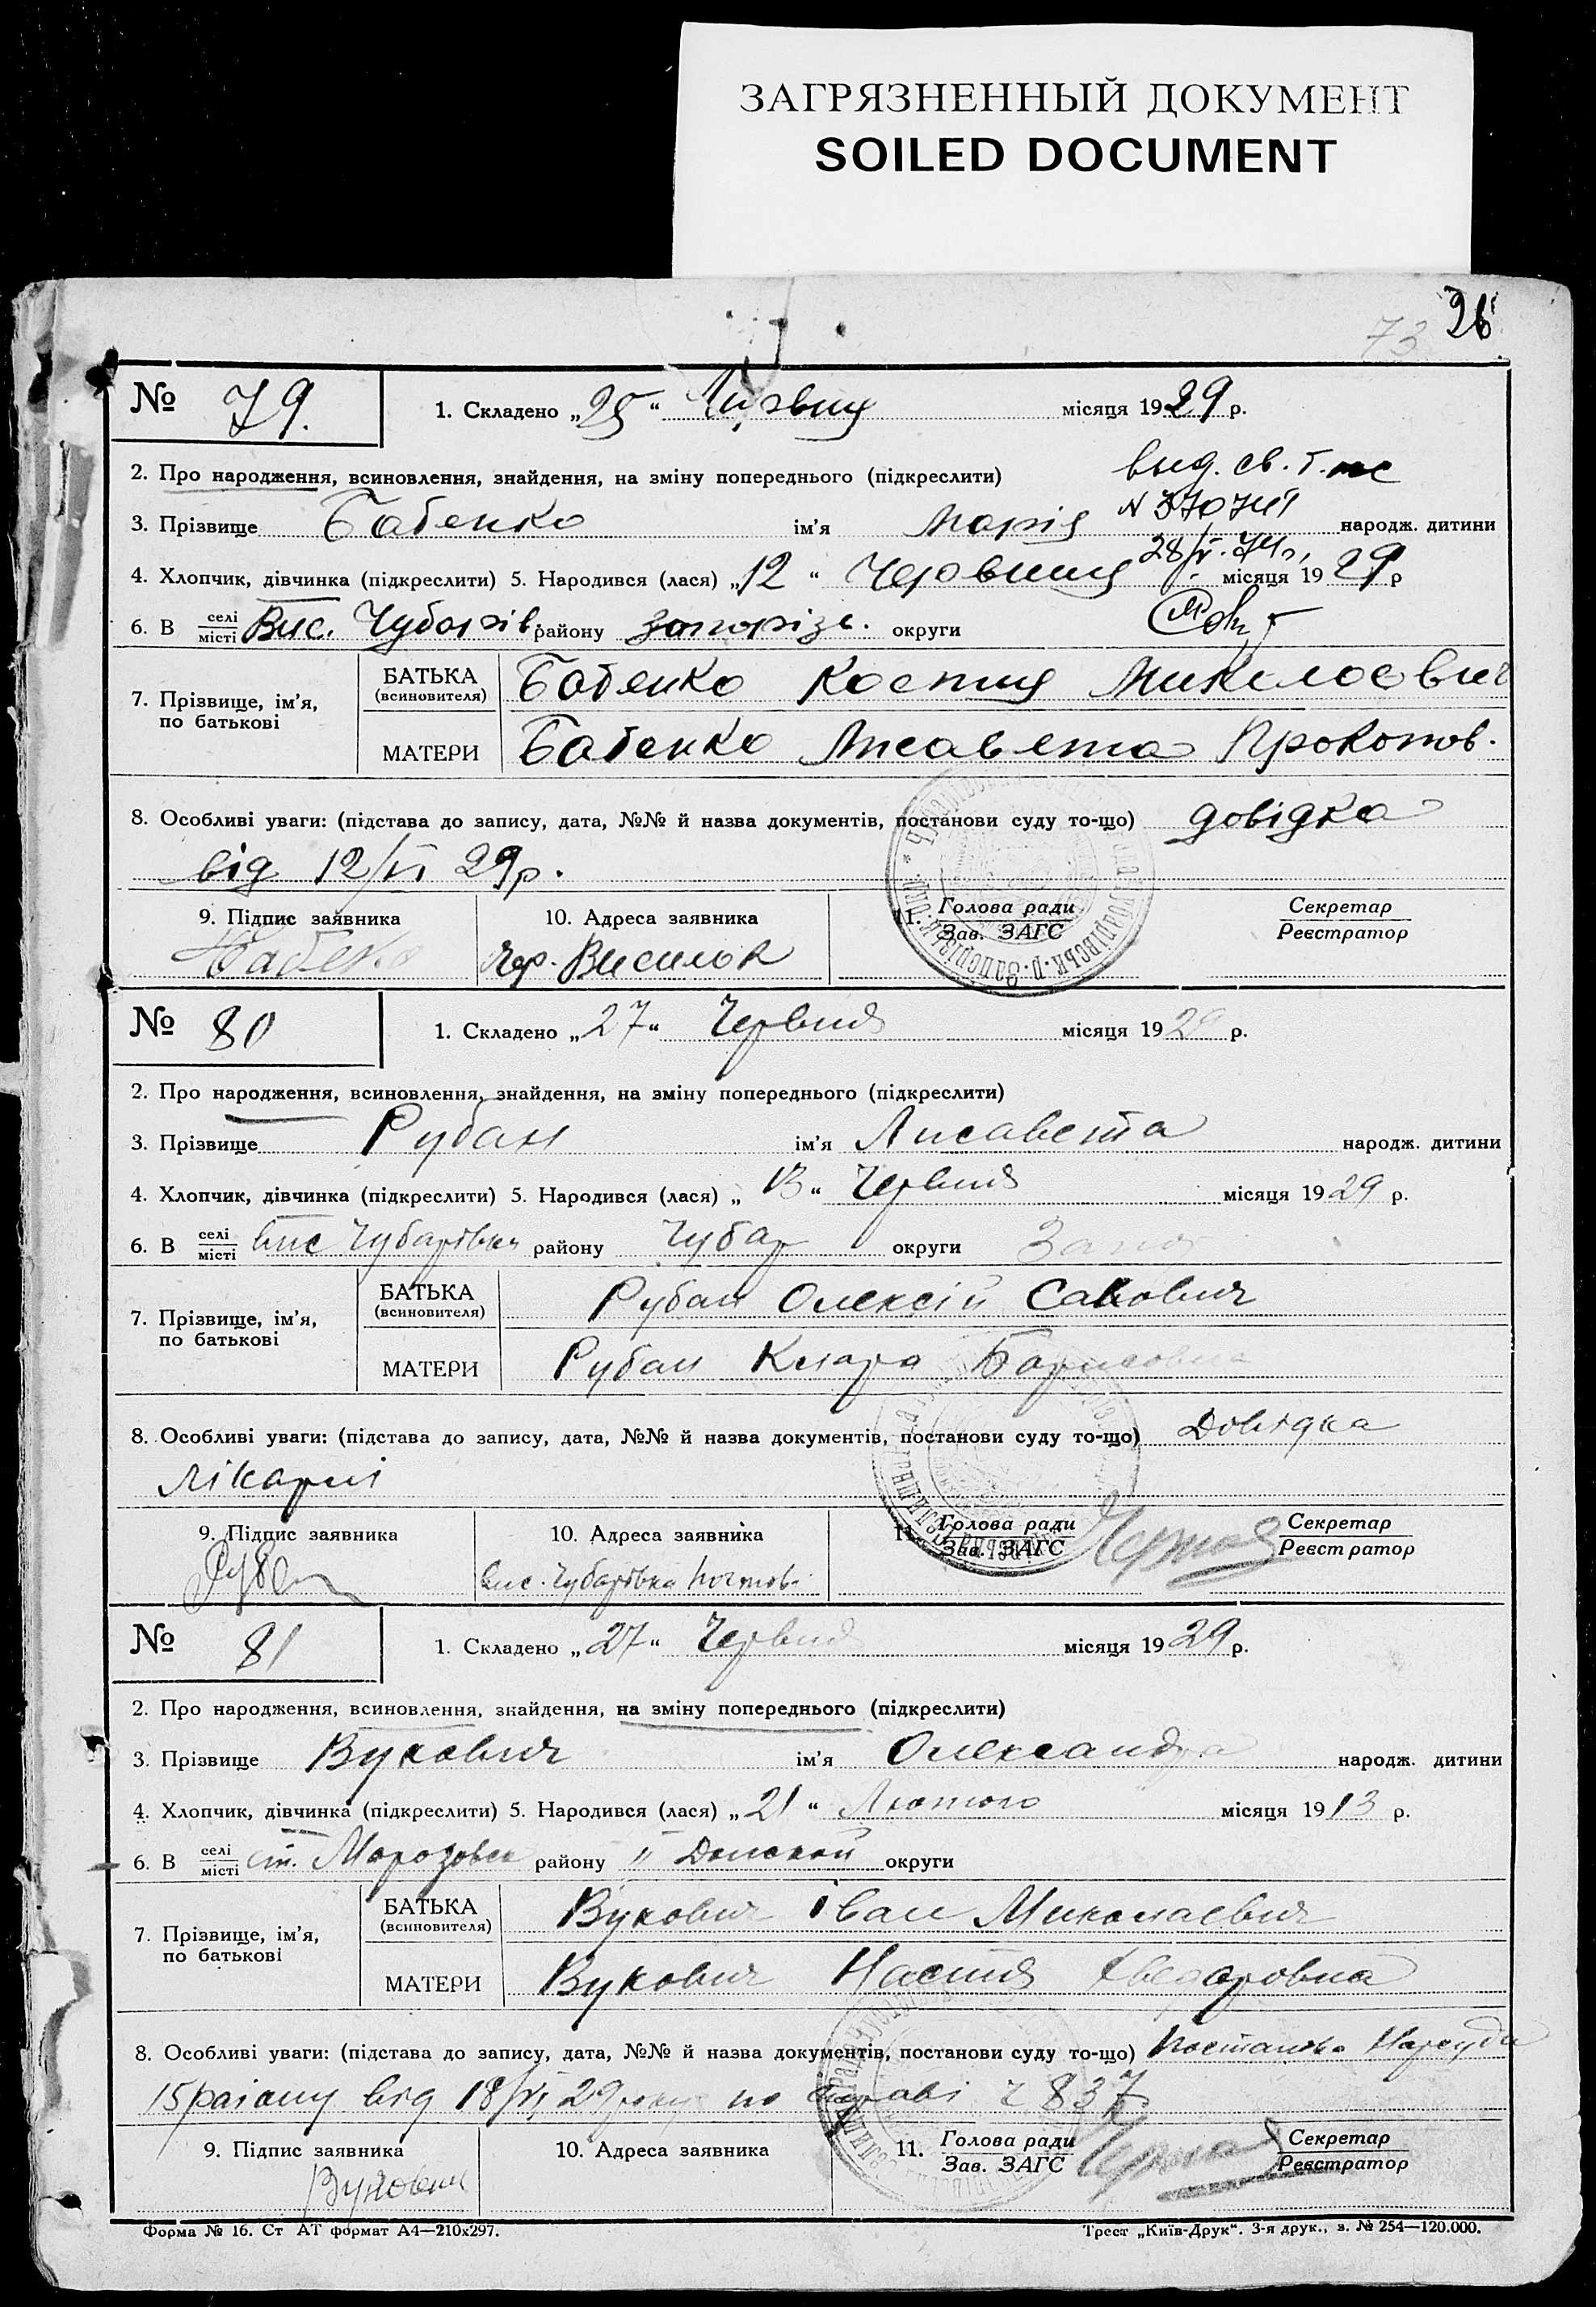 ЗАГРЯЗНЕННЫЙ ДОКУМЕНТ
SOILED DOCUMENT
73 26
№ 79. 1. Складено „25“ Червня місяця 1929 р.
2. Про народження, всиновлення, знайдення, на зміну попереднього (підкреслити) выд. св. т.
3. Прізвище Бабенко ім'я Марія народж. дитини
4. Хлопчик, дівчинка (підкреслити) 5. Народився (лася) „12“ Червння місяця 1929 р
28/V-74г.
6. В селі/місті Вис. Чубарів. району Запоріж. округи
7. Прізвище, ім'я, по батькові
БАТЬКА (всиновителя) Бабенко Костя Миколаевич
МАТЕРИ Бабенко Лисавета Прокопов.
8. Особливі уваги: (підстава до запису, дата, №№ й назва документів, постанови суду то-що) довідка
від 12/VI 29р.
9. Підпис заявника 10. Адреса заявника 11. Голова ради Секретар
Зав. ЗАГС Реєстратор
Бабенко Чер. Виселок
№ 80 1. Складено „27“ Червня місяця 1929 р.
2. Про народження, всиновлення, знайдення, на зміну попереднього (підкреслити)
3. Прізвище Рубан ім'я Лисавета народж. дитини
4. Хлопчик, дівчинка (підкреслити) 5. Народився (лася) „13“ Червня місяця 1929 р.
6. В селі/місті вис Чубарівка району Чубар округи Запор
7. Прізвище, ім'я, по батькові
БАТЬКА (всиновителя) Рубан Олексій Савович
МАТЕРИ Рубан Клара Борисовна
8. Особливі уваги: (підстава до запису, дата, №№ й назва документів, постанови суду то-що) Довідка
лікарні
9. Підпис заявника 10. Адреса заявника 11. Голова ради Секретар
Зав. ЗАГС Реєстратор
Рубан вис. Чубарівка
№ 81 1. Складено „27“ Червня місяця 1929 р.
2. Про народження, всиновлення, знайдення, на зміну попереднього (підкреслити)
3. Прізвище Вукович ім'я Олександра народж. дитини
4. Хлопчик, дівчинка (підкреслити) 5. Народився (лася) „21“ Лютого місяця 1913 р.
6. В селі/місті ст. Морозовск району II Донской округи
7. Прізвище, ім'я, по батькові
БАТЬКА (всиновителя) Вукович Іван Миколаевич
МАТЕРИ Вукович Настя Хведоровна
8. Особливі уваги: (підстава до запису, дата, №№ й назва документів, постанови суду то-що) Постанова Нарсуда
15 раіону від 18/VI 29 року по справі ч 837
9. Підпис заявника 10. Адреса заявника 11. Голова ради Секретар
Зав. ЗАГС Реєстратор
Вукович
Форма № 16. Ст АТ формат А4—210х297. Трест „Київ-Друк“. 3-я друк., з. № 254—120.000.